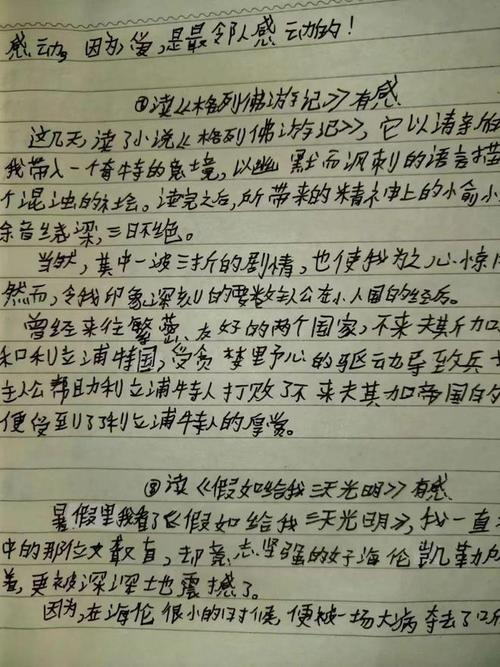 感动,因为爱,是最令人感动的!
②读《格列佛游记》有感
这几天,读了小说《格列佛游记》,它以清新的
我带入一个奇特的意境,以幽默而讽刺的语言描
个混浊的社会。读完之后,所带来的精神上的愉
余音绕梁,三日不绝。
当然,其中一波三折的剧情,也使我为之心惊
然而,令我印象深刻的要数主人公在小人国的经历。
曾经来往繁荣、友好的两个国家,不来夫其加
和利立浦特国,受贪梦野心的驱动导致兵
主人公帮助利立浦特人打败了不来夫其加帝国的
便受到了利立浦特人的厚赏。
③读《假如给我三天光明》有感
暑假里我看了《假如给我三天光明》,我一直
中的那位又聋盲,却意志坚强的好海伦凯勒
着,更被深深地震撼了。
因为,在海伦很小的时候,便被一场大病夺去了